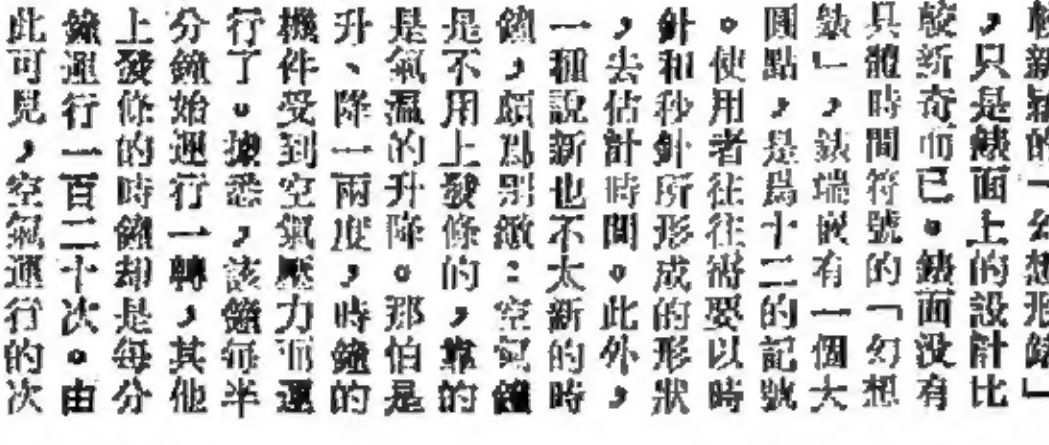 較新穎的「幻想形錶」
，只是錶面上的設計比
較新奇而已。錶面没有
具體時間符號的「幻想
錶」，錶端嵌有一個大
圓點，是爲十二的記號
。使用者往往需要以時
針和秒針所形成的形狀
，去估計時間。此外，
一種說新也不太新的時
鐘，頗爲別緻：空氣鐘
是不用上發條的，靠的
是氣溫的升降。那怕是
升、降一兩度，時鐘的
機件受到空氣壓力而運
行了。據悉，該鐘每半
分鐘始運行一轉，其他
上發條的時鐘却是每分
鐘運行一百二十次。由
此可見，空氣運行的次